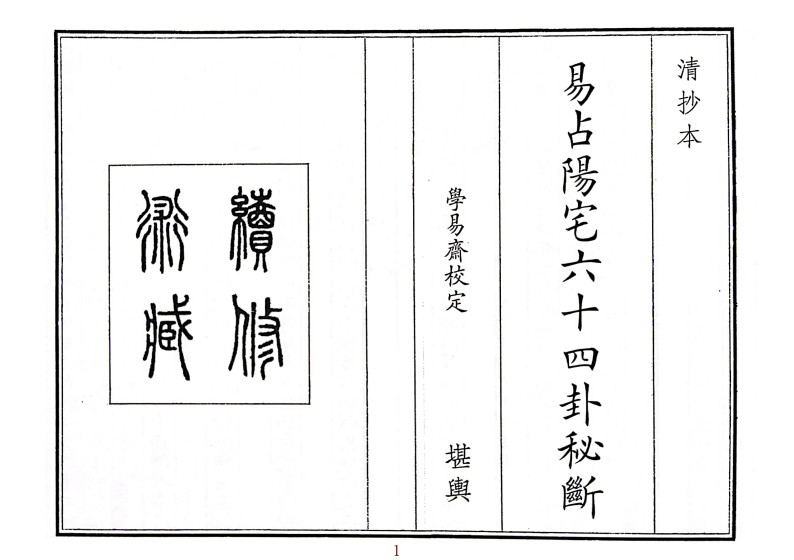 清抄本
易占陽宅六十四卦秘斷
學易齋校定
堪輿
續修
術藏
1